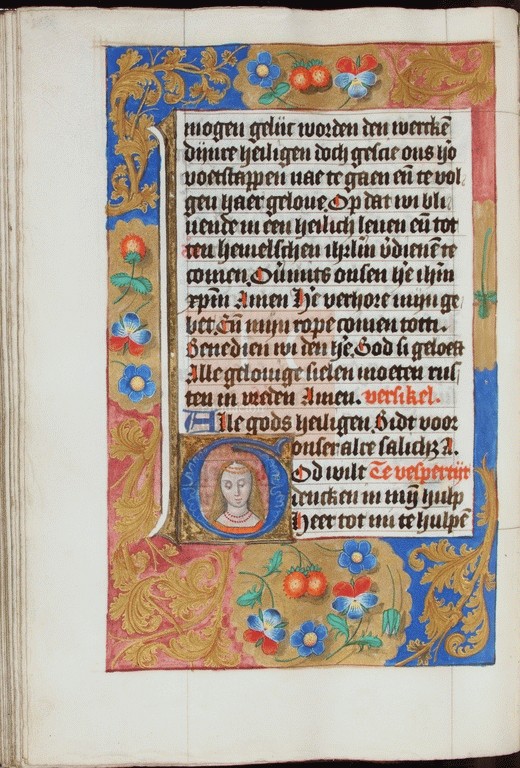 mogen gelijc worden den wercke͂
dijnre heiligen doch gelcie ons hŏ
voetstappen nae te gaen en͂ te vol
gen haer gelove Op dat wi bli
uende in een heilich leuen en͂ tot
ten hemelschen v̓dienē te
comen. Ou̓mits onsen h̓e ih̄m
xp̄m Amen H̓e verhore mijn ge
bet En͂ mijn rope comen tott i.
Benedien wi den h̓e. God si geloeft
Alle gelouige sielen moeten rus
ten in vreden Amen. versikel.
Alle gods heiligen. Bidt voor
onser alre salich̄z A.
God wilt Te vespertijt
dencken in mȳ hulp
Heer tot mi te hulpē